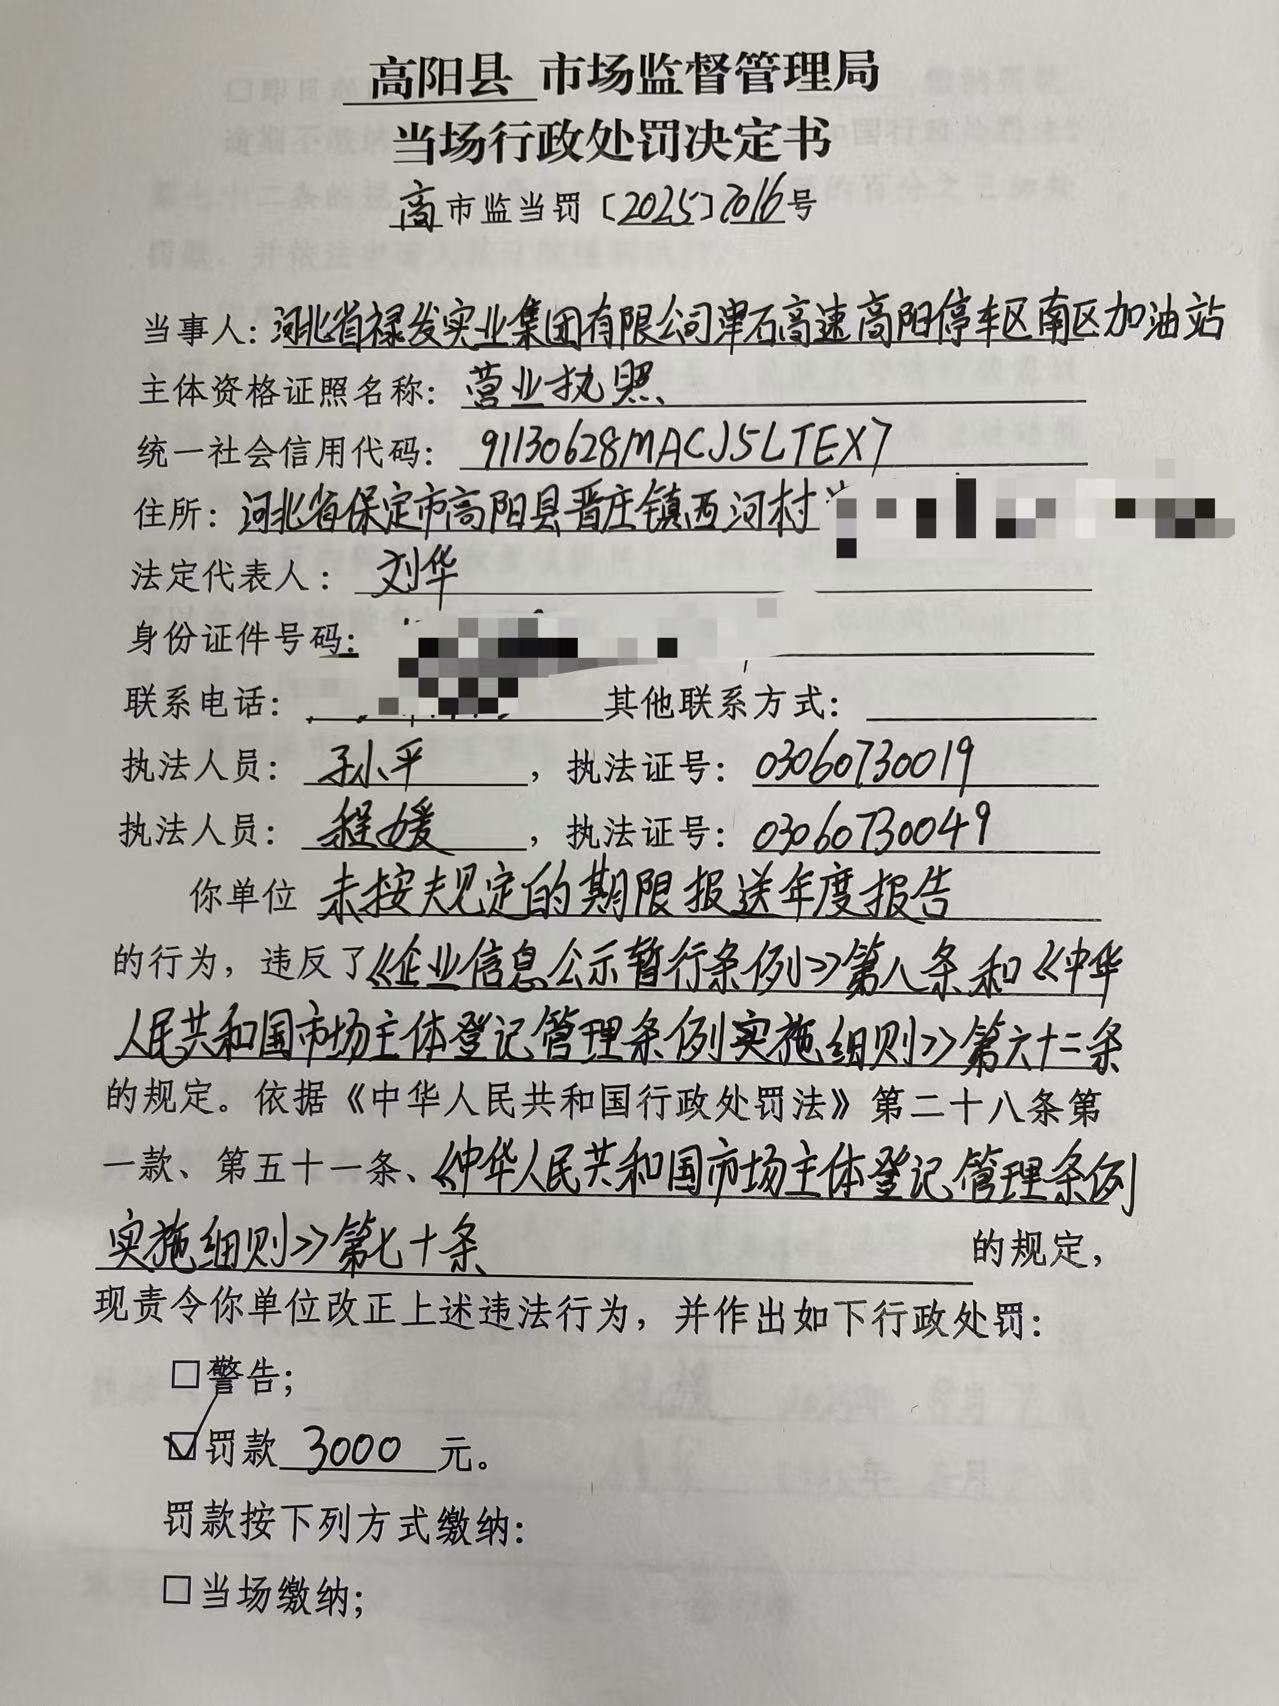 高阳县 市场监督管理局
当场行政处罚决定书
高市监当罚〔2025〕7016号
当事人：河北省禄发实业集团有限公司津石高速高阳停车区南区加油站
主体资格证照名称：营业执照
统一社会信用代码：91130628MACJ5LTEX7
住所：河北省保定市高阳县晋庄镇西河村
法定代表人：刘华
身份证件号码：
联系电话： 其他联系方式：
执法人员：孙小平，执法证号：03060730019
执法人员：程媛，执法证号：03060730049
你单位 未按规定的期限报送年度报告
的行为，违反了《企业信息公示暂行条例》第八条和《中华
人民共和国市场主体登记管理条例实施细则》第六十三条
的规定。依据《中华人民共和国行政处罚法》第二十八条第
一款、第五十一条、《中华人民共和国市场主体登记管理条例
实施细则》第七十条 的规定，
现责令你单位改正上述违法行为，并作出如下行政处罚：
□警告；
☑罚款 3000 元。
罚款按下列方式缴纳：
□当场缴纳；